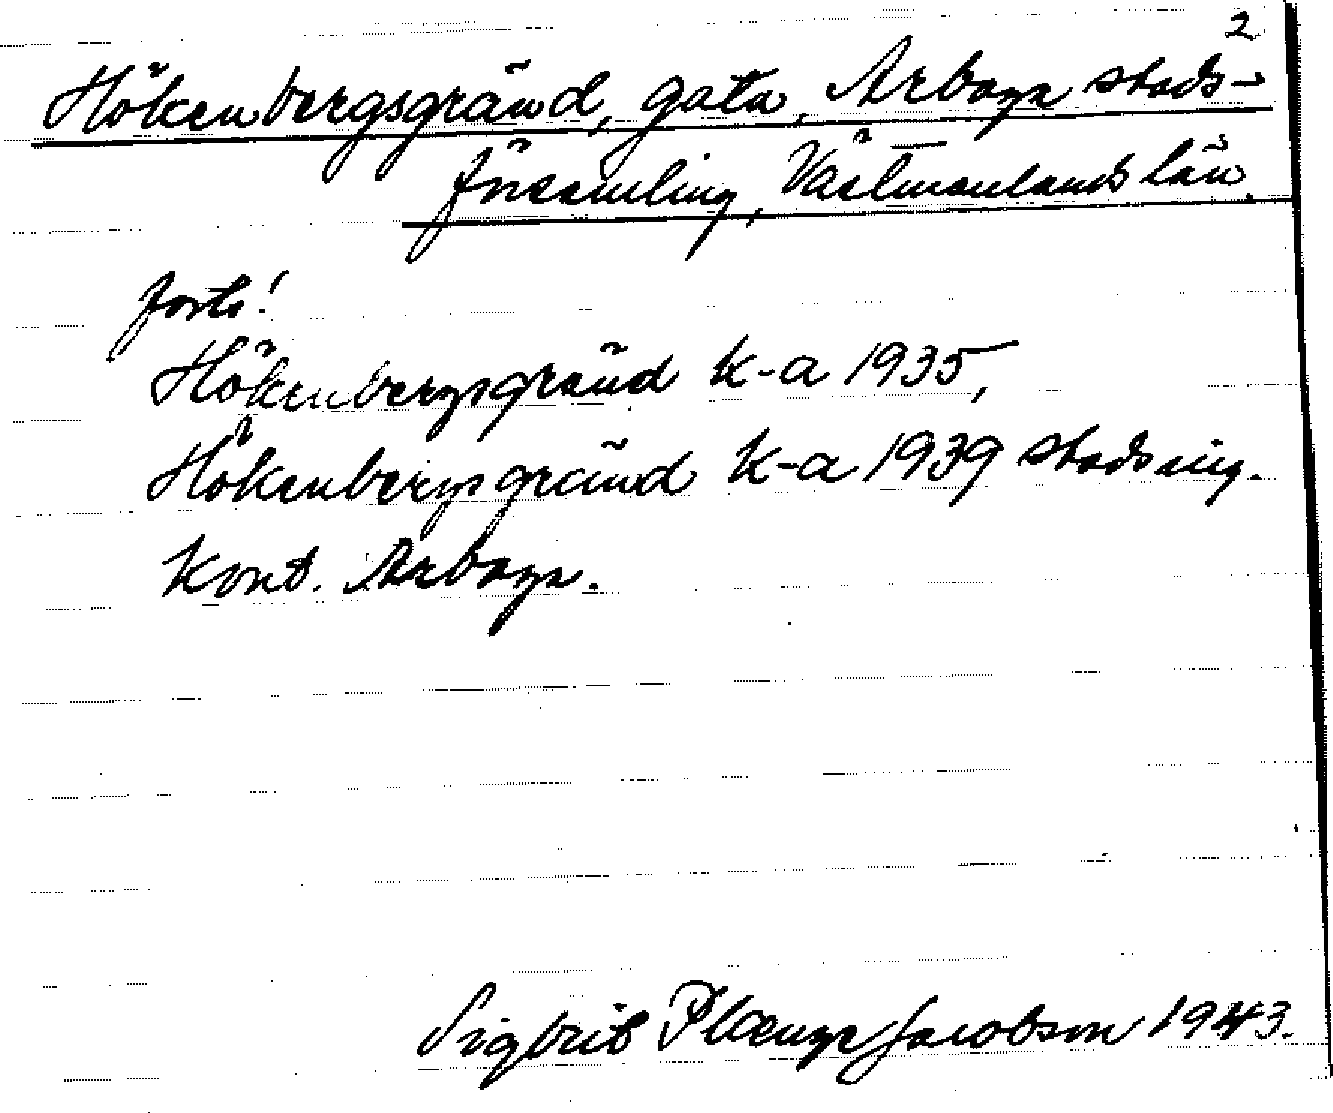 2
Hökenbergsgränd, gata, Arboga stads-
församling, Västmanlands län.
forts!
Hökenbergsgränd K-a 1935,
Hökenbergsgränd K-a 1939 stadsing.
Kont. Arboga.
Sigbrit Plænge Jacobson 1943.